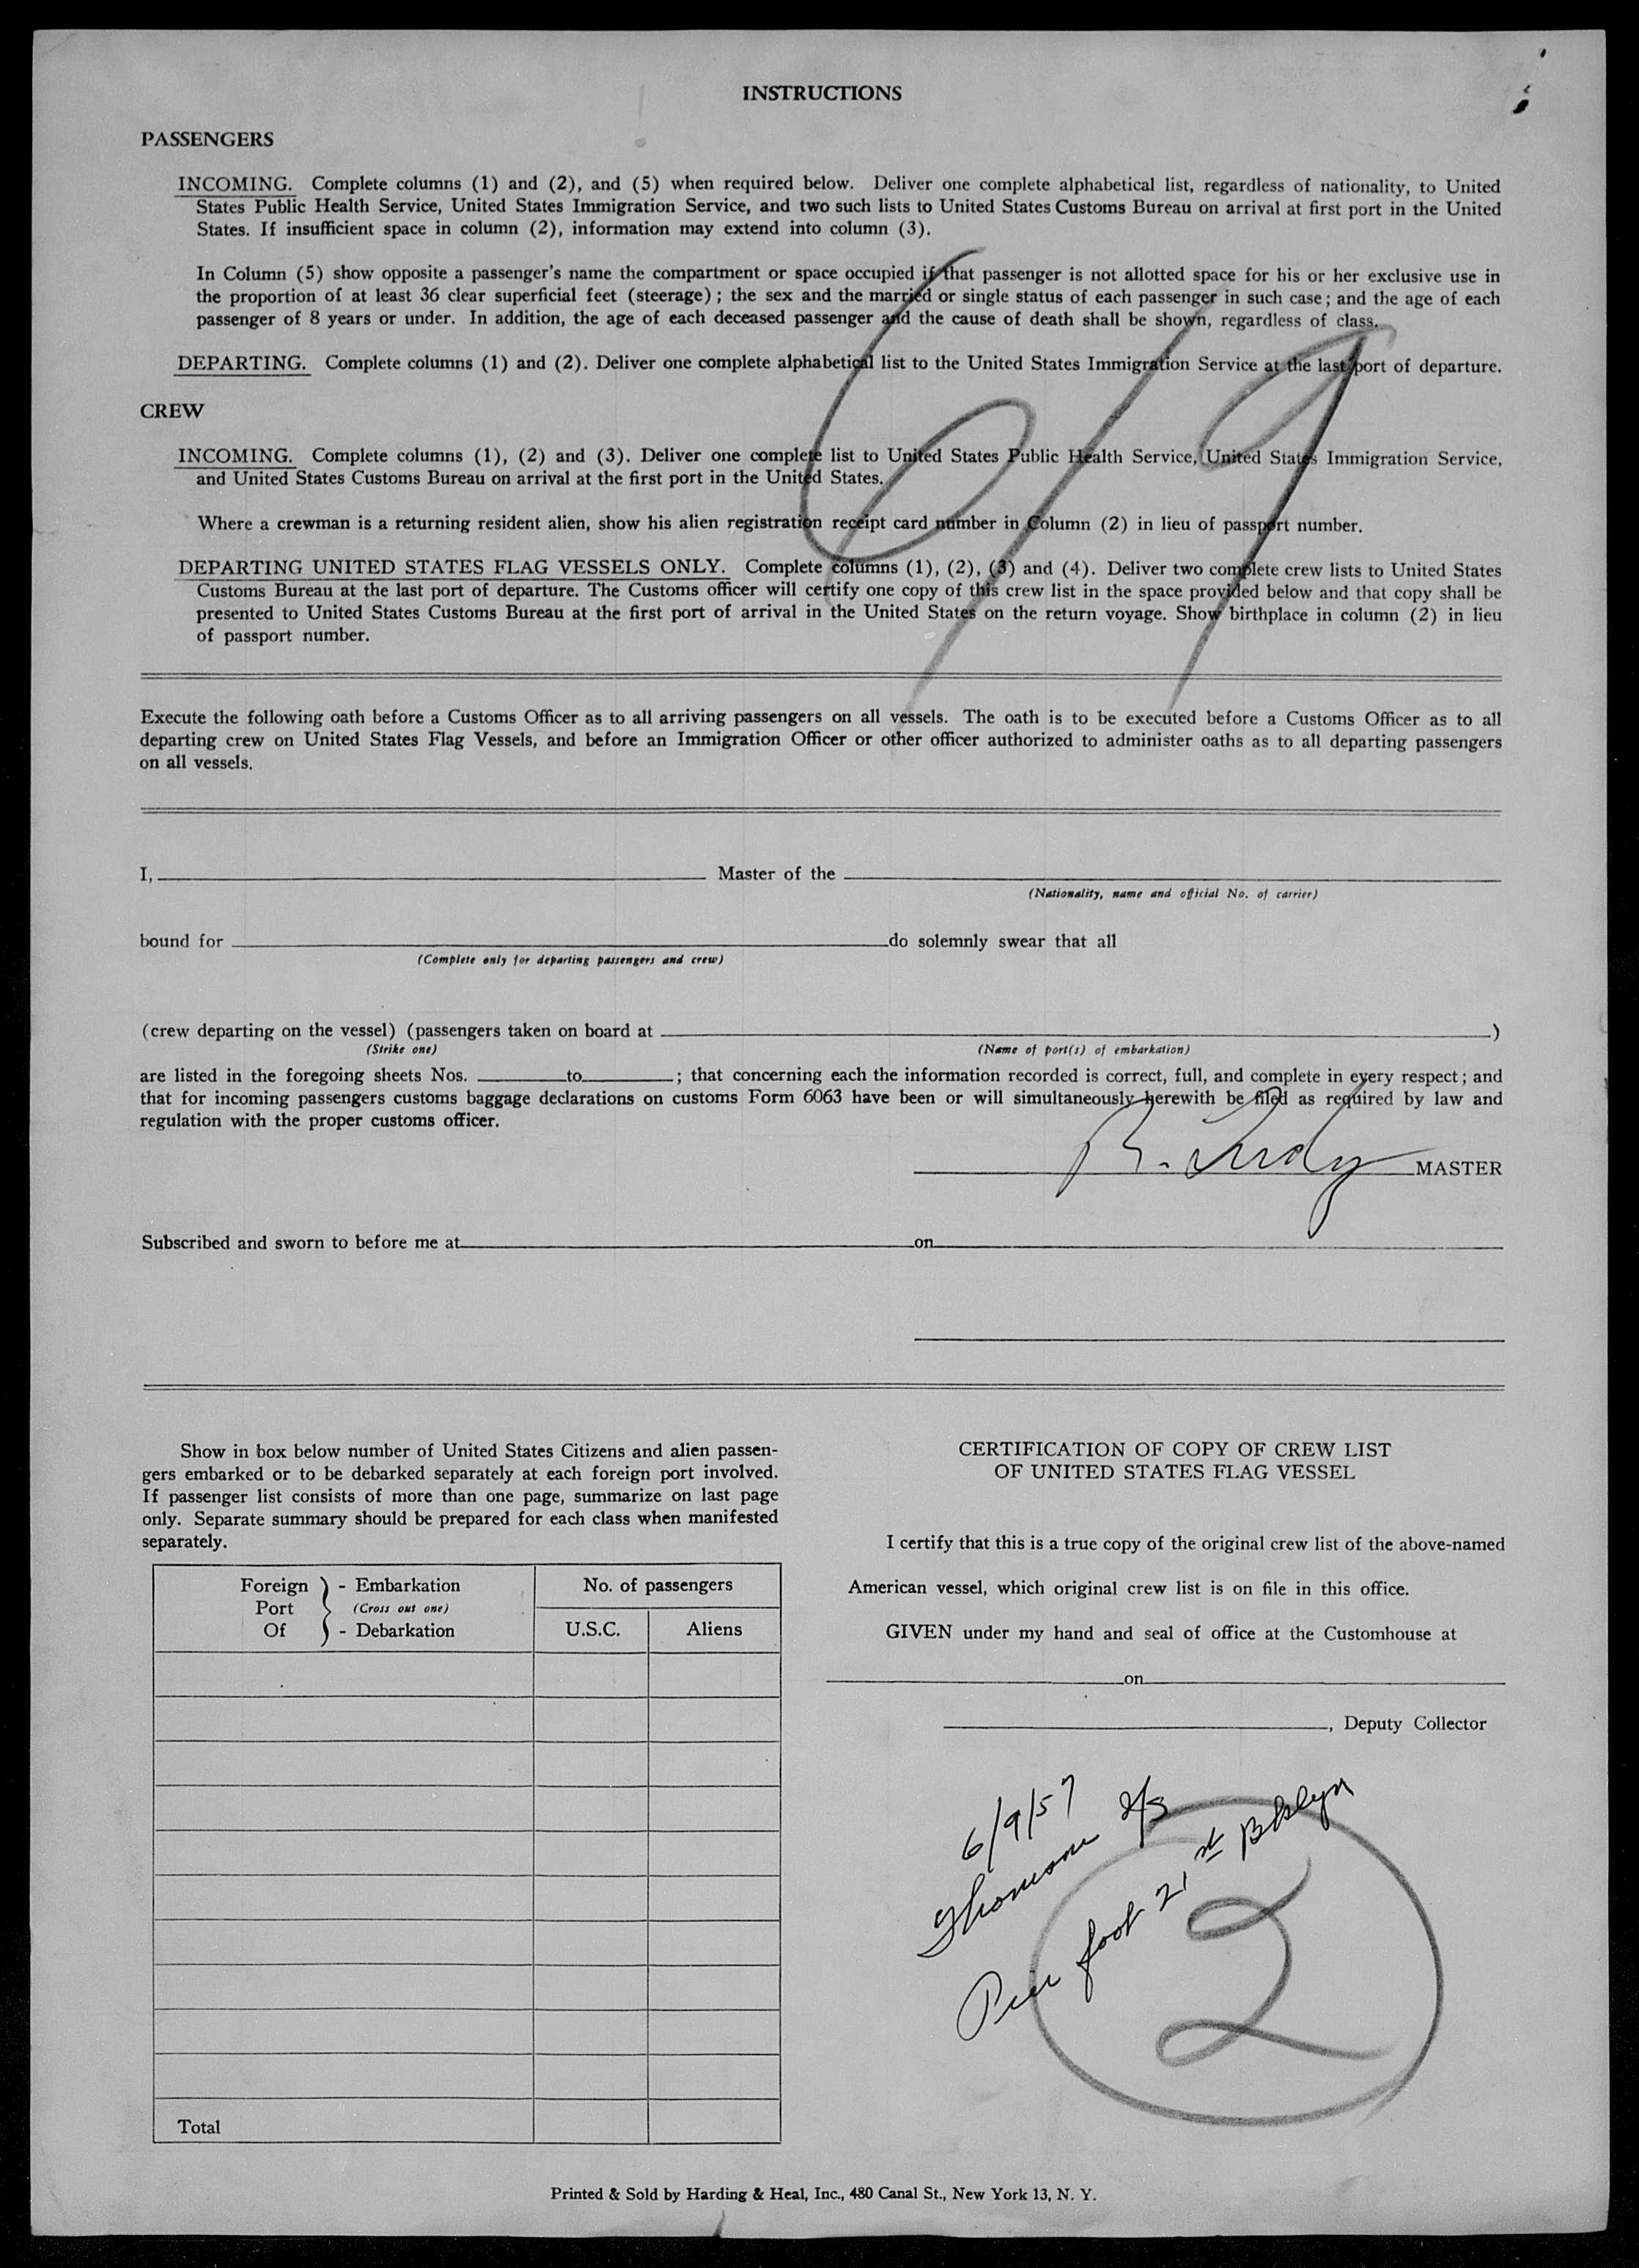 INSTRUCTIONS
PASSENGERS
INCOMING. Complete columns (1) and (2), and (5) when required below. Deliver one complete alphabetical list, regardless of nationality, to United
States Public Health Service, United States Immigration Service, and two such lists to United States Customs Bureau on arrival at first port in the United
States. If insufficient space in column (2), information may extend into column (3).
In Column (5) show opposite a passenger's name the compartment or space occupied if that passenger is not allotted space for his or her exclusive use in
the proportion of at least 36 clear superficial feet (steerage); the sex and the married or single status of each passenger in such case; and the age of each
passenger of 8 years or under. In addition, the age of each deceased passenger and the cause of death shall be shown, regardless of class.
DEPARTING. Complete columns (1) and (2). Deliver one complete alphabetical list to the United States Immigration Service at the last port of departure.
6/9
CREW
INCOMING. Complete columns (1), (2) and (3). Deliver one complete list to United States Public Health Service, United States Immigration Service,
and United States Customs Bureau on arrival at the first port in the United States.
Where a crewman is a returning resident alien, show his alien registration receipt card number in Column (2) in lieu of passport number.
DEPARTING UNITED STATES FLAG VESSELS ONLY. Complete columns (1), (2), (3) and (4). Deliver two complete crew lists to United States
Customs Bureau at the last port of departure. The Customs officer will certify one copy of this crew list in the space provided below and that copy shall be
presented to United States Customs Bureau at the first port of arrival in the United States on the return voyage. Show birthplace in column (2) in lieu
of passport number.
Execute the following oath before a Customs Officer as to all arriving passengers on all vessels. The oath is to be executed before a Customs Officer as to all
departing crew on United States Flag Vessels, and before an Immigration Officer or other officer authorized to administer oaths as to all departing passengers
on all vessels.
I, Master of the
(Nationality, name and official No. of carrier)
bound for do solemnly swear that all
(Complete only for departing passengers and crew)
(crew departing on the vessel) (passengers taken on board at )
(Strike one) (Name of port(s) of embarkation)
are listed in the foregoing sheets Nos. to ; that concerning each the information recorded is correct, full, and complete in every respect; and
that for incoming passengers customs baggage declarations on customs Form 6063 have been or will simultaneously herewith be filed as required by law and
regulation with the proper customs officer.
MASTER
Subscribed and sworn to before me at on
Show in box below number of United States Citizens and alien passen-
gers embarked or to be debarked separately at each foreign port involved.
If passenger list consists of more than one page, summarize on last page
only. Separate summary should be prepared for each class when manifested
separately.
Foreign - Embarkation No. of passengers
Port (Cross out one)
Of - Debarkation U.S.C. Aliens
Total
CERTIFICATION OF COPY OF CREW LIST
OF UNITED STATES FLAG VESSEL
I certify that this is a true copy of the original crew list of the above-named
American vessel, which original crew list is on file in this office.
GIVEN under my hand and seal of office at the Customhouse at
on
, Deputy Collector
6/9/57
Pier foot 21 st Bklyn
2
Printed & Sold by Harding & Heal, Inc., 480 Canal St., New York 13, N. Y.